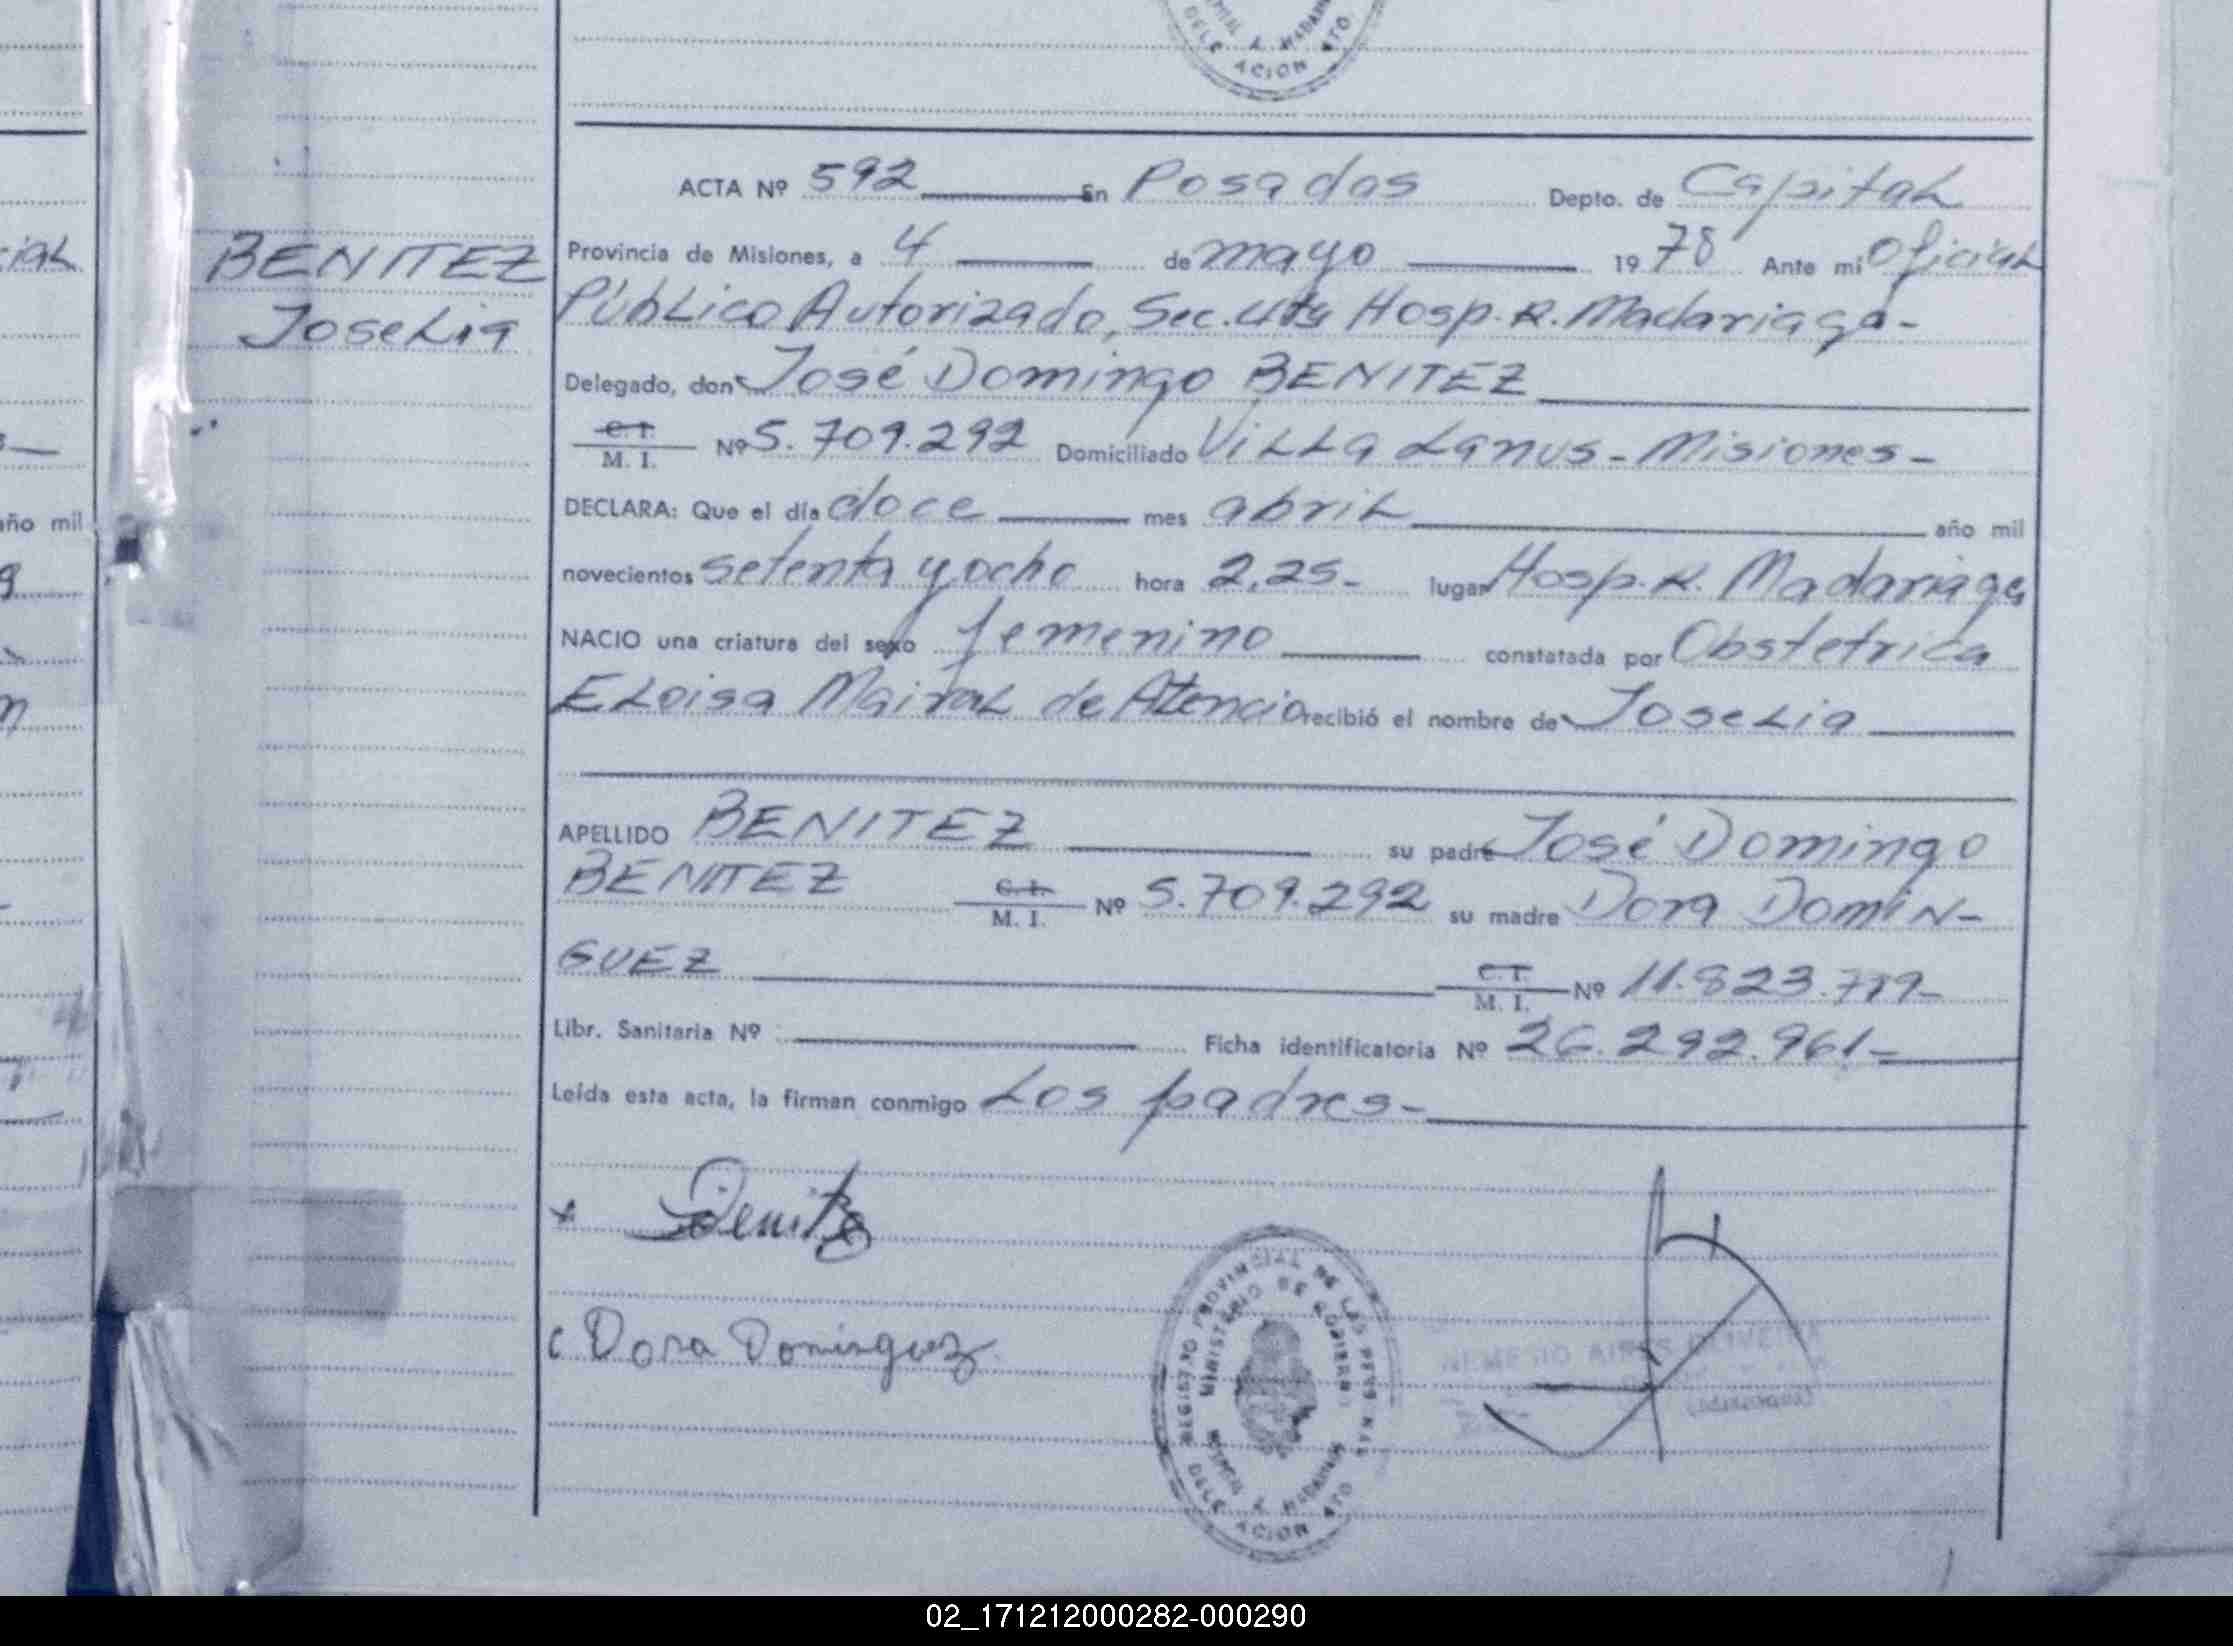 ACTA Nº 592 En Posadas Depto. de Capital
Provincia de Misiones, a 4 de mayo 1978 Ante mi Oficial
Público Autorizado, Sec. Hosp. R. Madariaga-
BENITEZ
Joselia
Delegado, don José Domingo BENITEZ
C. I.
M. I. Nº 5.709.292 Domiciliado Villa Lanus - Misiones -
DECLARA: Que el día doce mes abril año mil
novecientos setenta y ocho hora 2,25- lugar Hosp. R. Madariaga
NACIO una criatura del sexo femenino constatada por Obstetrica
Eloisa Mairal de Atencio recibió el nombre de Joselia
APELLIDO BENITEZ su padre José Domingo
BENITEZ C. I. M. I. Nº 5.709.292 su madre Dora DOMIN-
GUEZ C. I. M. I. Nº 11.823.
Libr. Sanitaria Nº Ficha identificatoria Nº 26.292.961-
Leída esta acta, la firman conmigo Los padres-
Benitez
Dora Dominguez
REGISTRO PROVINCIAL DE LAS PERSONAS
MINISTERIO DE GOBIERNO
DELEGACION
año mil
02_171212000282-000290